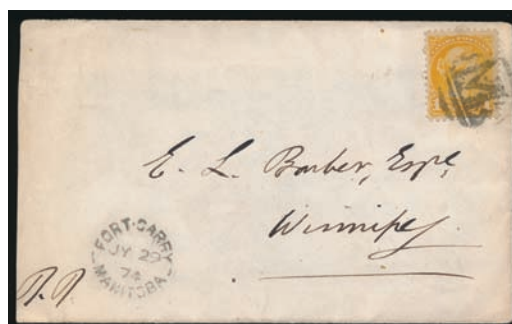 E. L. Barber, Esqre
Winnipeg
FORT-GARRY
JY 29
74
MANITOBA